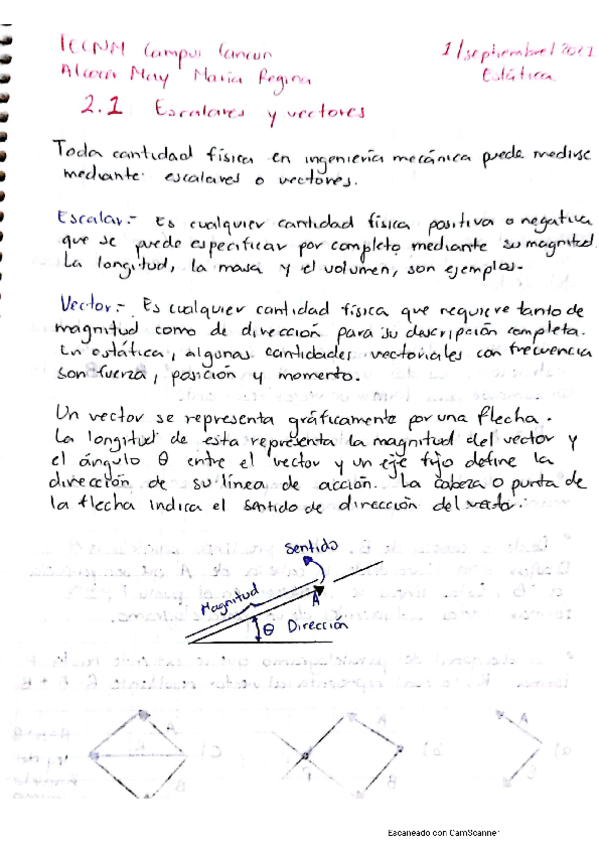 TECNM Campus Cancun
1/septiembre/2021
Alcocer May Maria Regina
Estática
2.1 Escalares y vectores
Toda cantidad física en ingeniería mecánica puede medirse
mediante escalares o vectores.
Escalar.- Es cualquier cantidad física positiva o negativa
que se puede especificar por completo mediante su magnitud.
La longitud, la masa y el volumen, son ejemplos.
Vector.- Es cualquier cantidad física que requiere tanto de
magnitud como de dirección para su descripción completa.
En estática, algunas cantidades vectoriales con frecuencia
son fuerza, posición y momento.
Un vector se representa gráficamente por una flecha.
La longitud de esta representa la magnitud del vector y
el ángulo θ entre el vector y un eje fijo define la
dirección de su línea de acción. La cabeza o punta de
la flecha indica el sentido de dirección del vector.
Sentido
Magnitud
A
θ Dirección
Escaneado con CamScanner